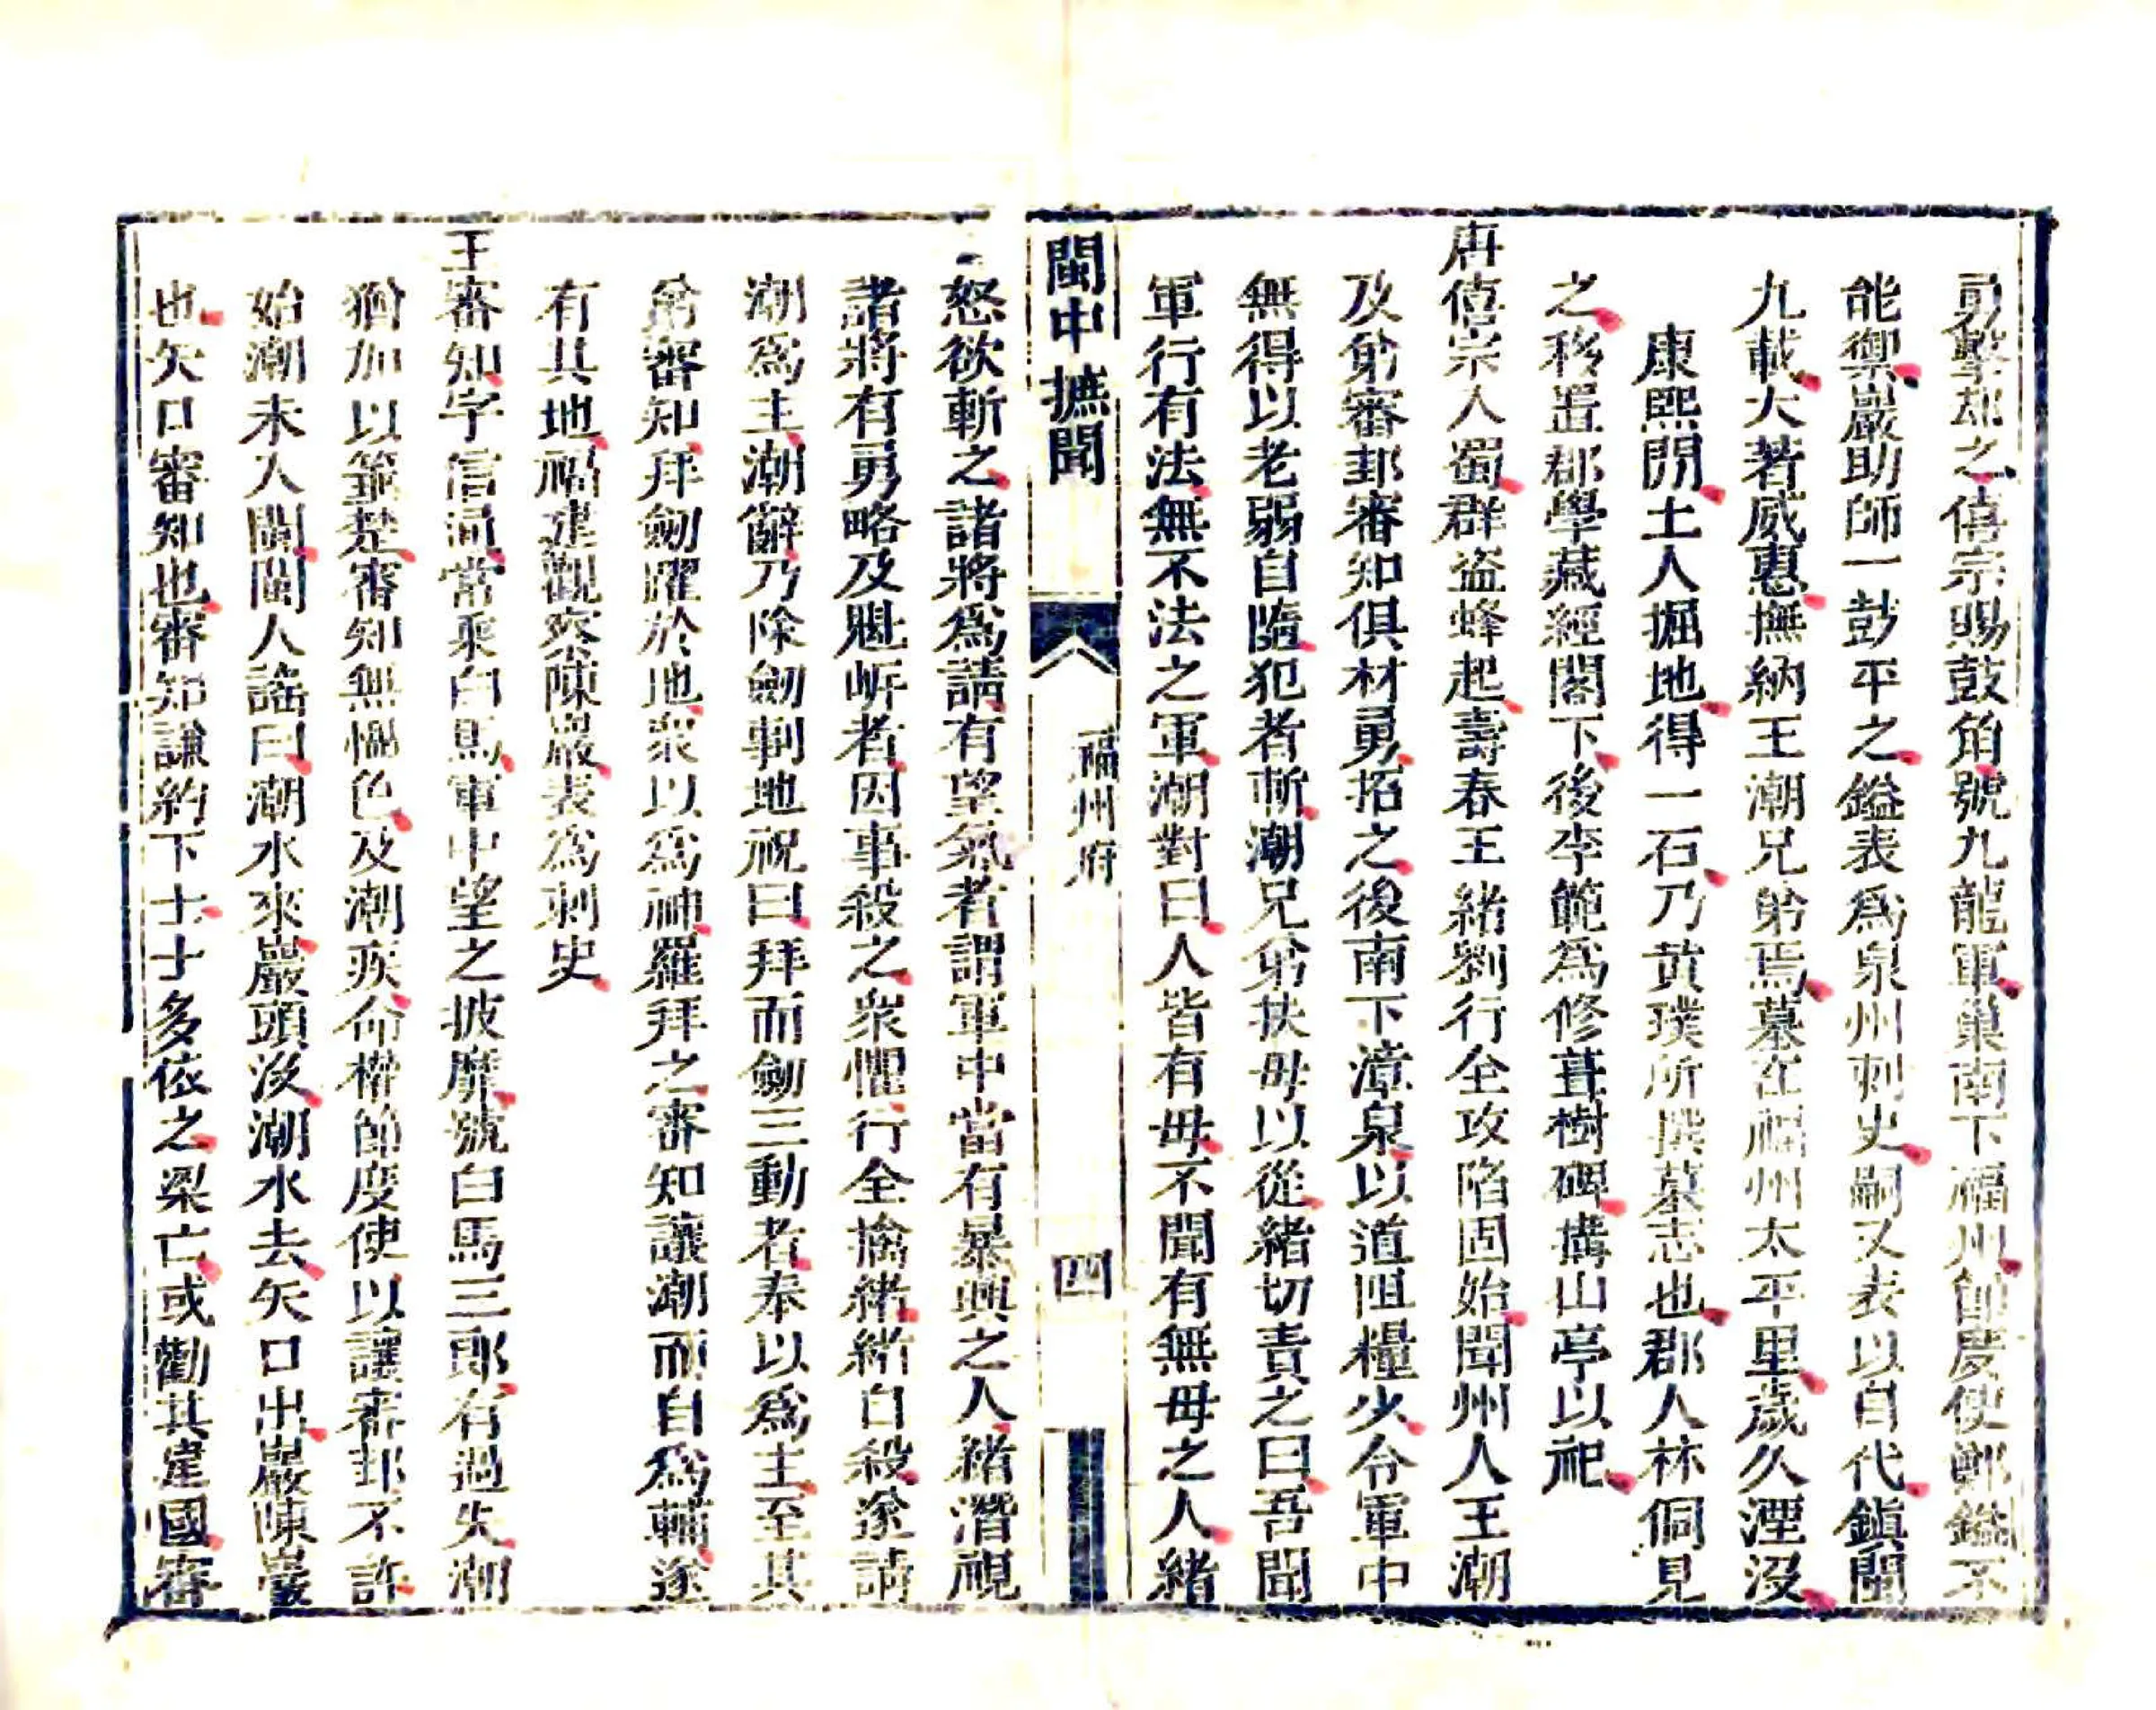 勇擊却之僖宗賜鼓角號九龍軍巢南下福州節度使鄭鎰不
能禦巖助師一鼓平之鎰表爲泉州刺史嗣又表以自代鎮閩
九載大著威惠撫納王潮兄弟焉墓在福州太平里歲久湮沒
康熙閒土人掘地得一石乃黃璞所撰墓志也郡人林侗見
之移置郡學藏經閣下後李範爲修葺樹碑搆山亭以祀
唐僖宗入蜀群盜蜂起壽春王緒劉行全攻陷固始聞州人王潮
及弟審邽審知俱材勇招之後南下漳泉以道阻糧少令軍中
無得以老弱自隨犯者斬潮兄弟扶母以從緒切責之曰吾聞
軍行有法無不法之軍潮對曰人皆有母不聞有無母之人緒
閩中摭聞
福州府
四
怒欲斬之諸將爲請有望氣者謂軍中當有暴興之人緒潛視
諸將有勇略及魁岸者因事殺之衆懼行全擒緒緒自殺遂請
潮爲主潮辭乃除劒剚地祝曰拜而劒三動者奉以爲主至其
弟審知拜劒躍於地衆以爲神羅拜之審知讓潮而自爲輔遂
有其地福建觀察陳巖表爲刺史
王審知字信通常乘白馬軍中望之披靡號白馬三郎有過失潮
猶加以箠楚審知無慍色及潮疾命權節度使以讓審邽不許
始潮未入閩閩人謠曰潮水來巖頭沒潮水去矢口出巖陳巖
也矢口審知也審知謙約下士士多依之梁亡或勸其建國審